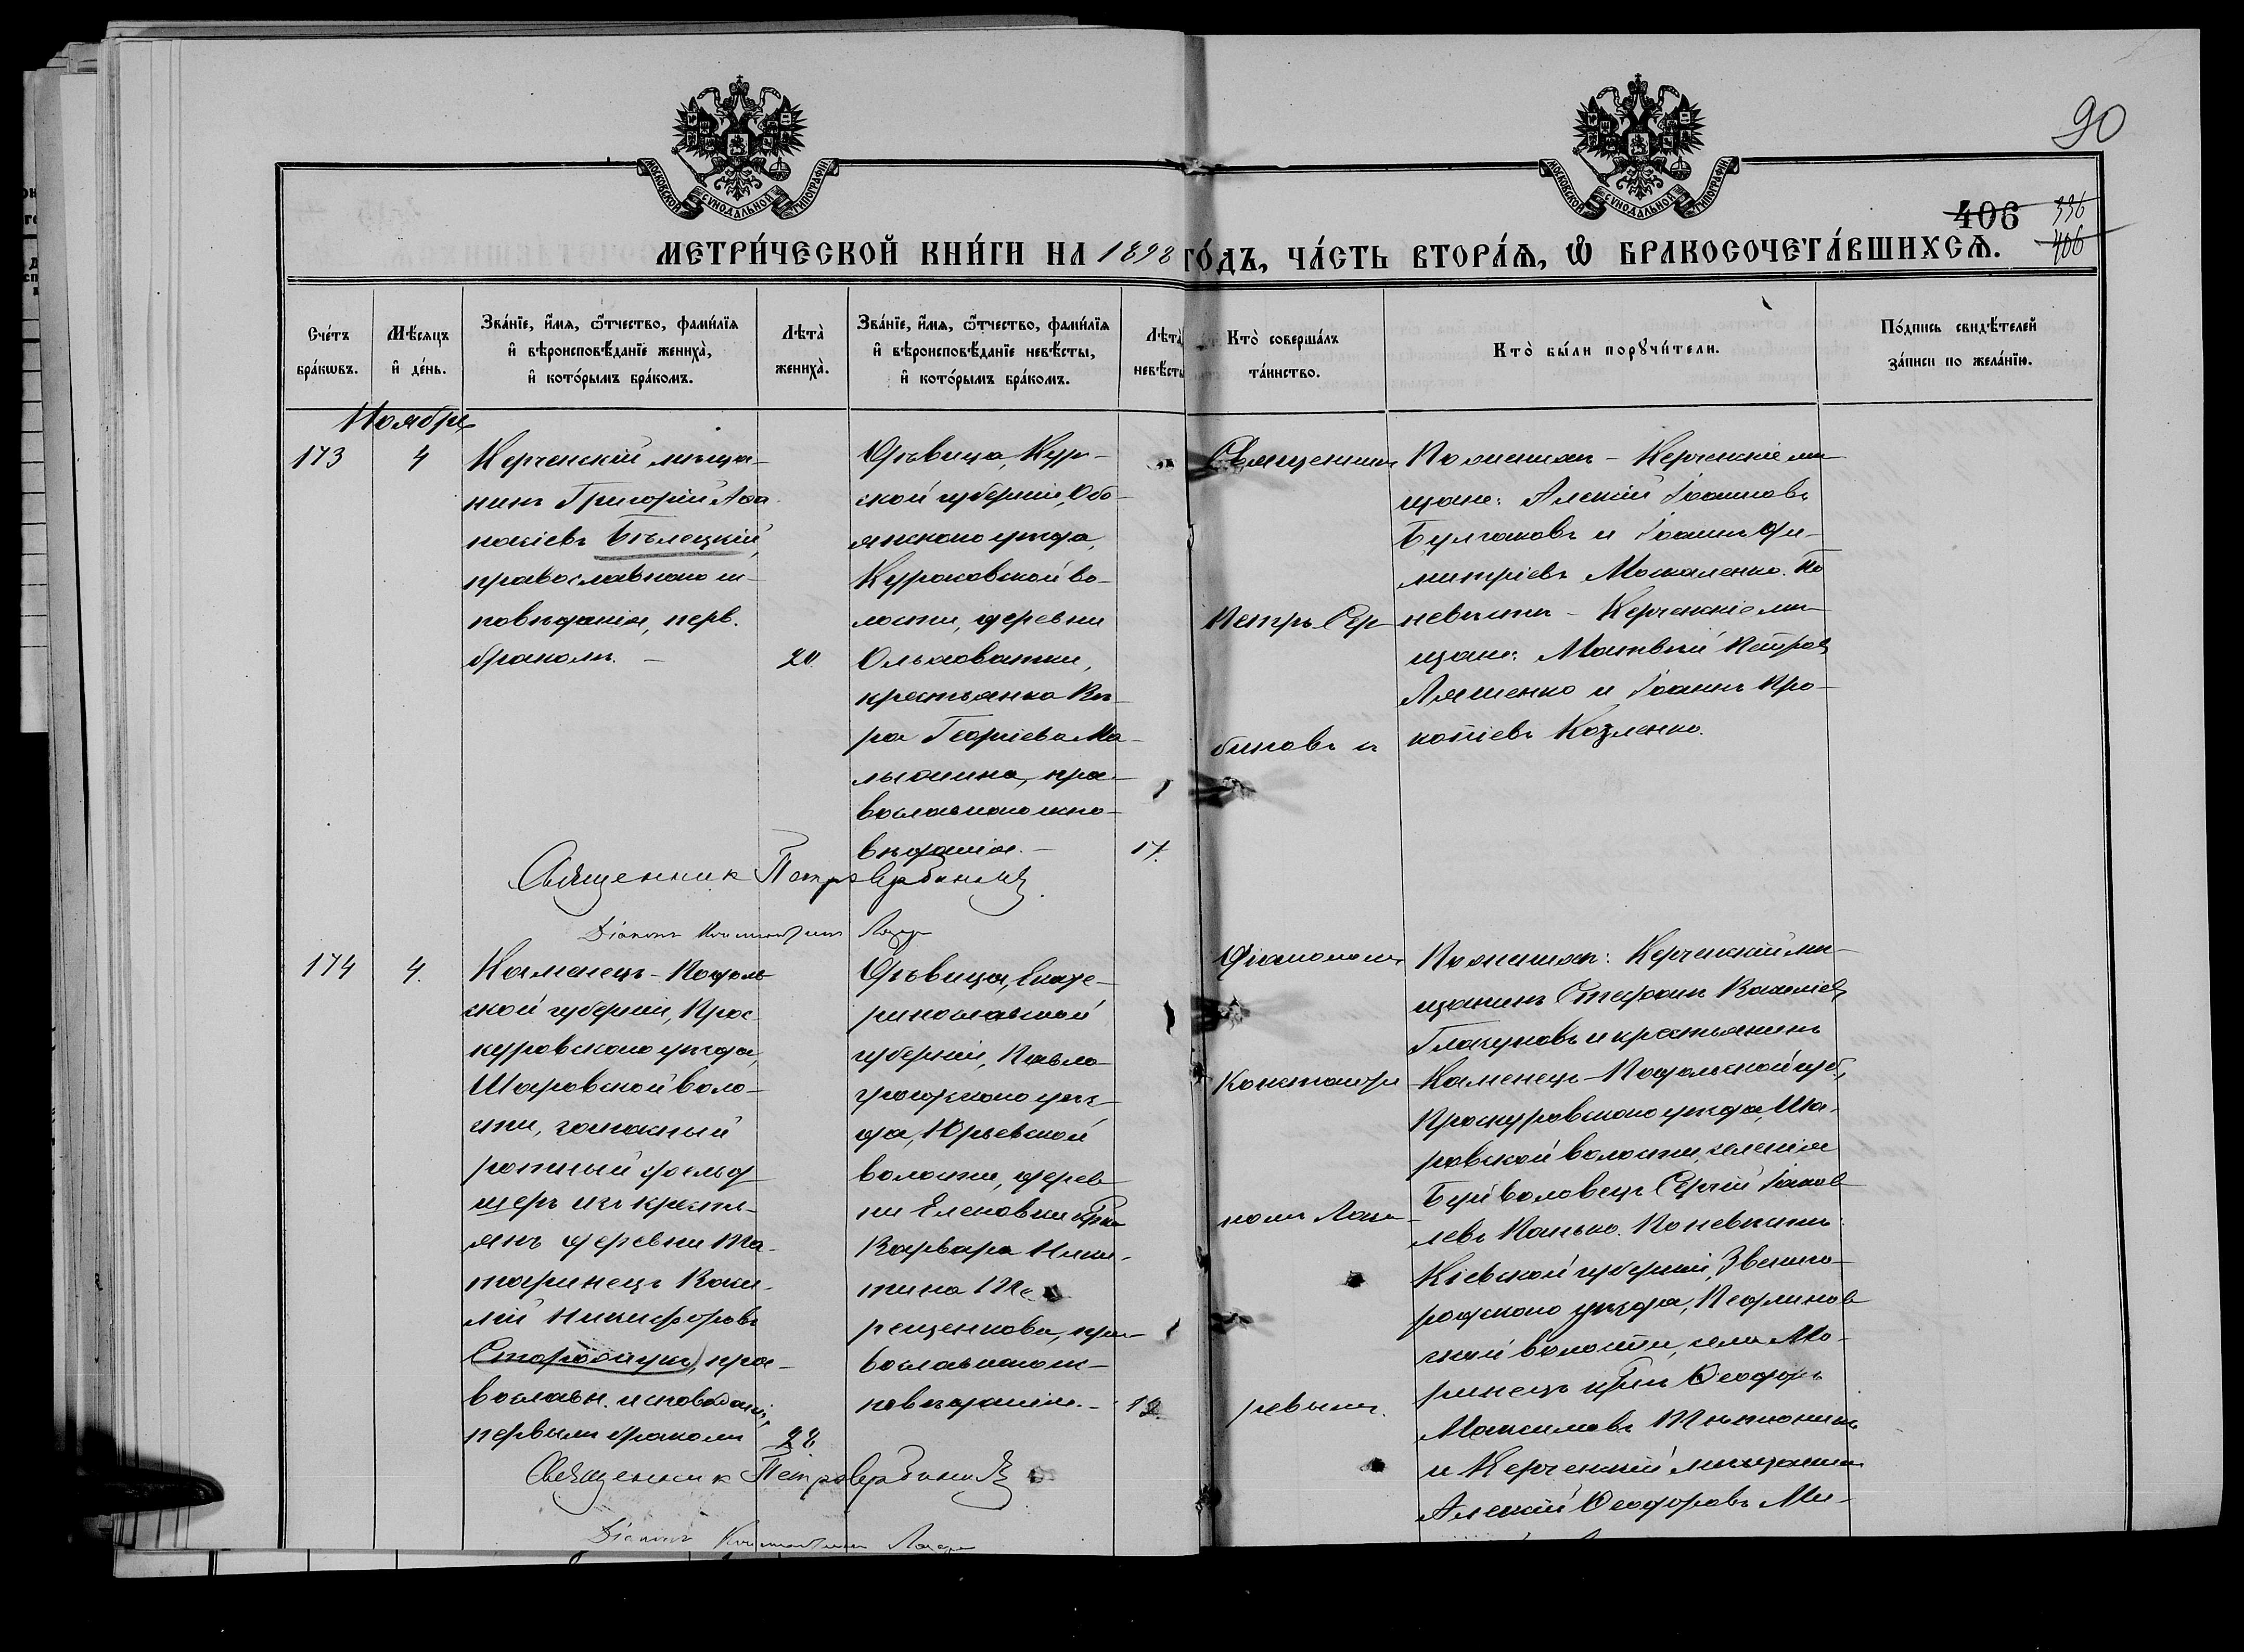 90
МОСКОВСКОЙ СУНОДАЛЬНОЙ ТИПОГРАФІИ
МОСКОВСКОЙ СУНОДАЛЬНОЙ ТИПОГРАФІИ
406 336
406
МЕТРИ́ЧЕСКОЙ КНИ́ГИ НА 1898 ГО́ДЪ, ЧА́СТЬ ВТОРА́Ѧ, Ѽ БРАКОСОЧЕТА́ВШИХСѦ.
Сче́тъ
бра́кѡвъ.
Мѣ́сяцъ
и҆ де́нь.
Зва́нїе, и҆́мя, ѻ҆́тчество, фами́лїя
и҆ вѣроисповѣ́данїе жениха̀,
и҆ кото́рымъ бра́комъ.
Лѣта̀
жениха̀.
Зва́нїе, и҆́мя, ѻ҆́тчество, фами́лїя
и҆ вѣроисповѣ́данїе невѣ́сты,
и҆ кото́рымъ бра́комъ.
Лѣта̀
невѣ́сты
Кто̀ соверша́лъ
та́инство.
Кто̀ бы́ли порꙋчи́тели.
По́дпись свидѣ́телей
за́писи по жела́нїю.
Ноябрь
173
4
Керченскій мѣща-
нинъ Григорій Аѳа-
насіевъ Бѣлецкій,
православнаго ис-
повѣданія, перв.
бракомъ. –
20.
Дѣвица, Кур-
ской губерніи, Обо-
янскаго уѣзда,
Кураковской во-
лости, деревни
Ольховатки,
крестьянка Вѣ-
ра Георгіева Ма-
лыхина, пра-
вославнаго испо-
вѣданія. –
17.
Священник
Петръ Сер
биновъ съ
По женихѣ – Керченскіе мѣ-
щане: Алексій Іоанновъ
Булгаковъ и Іоаннъ Ди-
митріевъ Москаленко. По
невѣстѣ – Керченскіе мѣ-
щане: Матвѣй Петровъ
Ляшенко и Іоаннъ Про-
копіевъ Козленко.
Священник Петръ Сербиновъ
Діаконъ Константинъ Лазар
174
4.
Каменецъ-Подоль
ской губерніи, Прос-
куровскаго уѣзда,
Шаровской воло-
сти, запасный
ротный фельд
шеръ изъ кресть-
янъ деревни
Васи-
лій Никифоровъ
пра-
вославн. исповѣданія,
первымъ бракомъ
28.
Дѣвица, Екате-
ринославской
губерніи, Павло-
градскаго уѣз-
да, Юрьевской
волости, дерев
ни Еленовки кр-ка
Варвара Ники-
тина Те
рещенкова, пра-
вославнаго ис-
повѣданія. –
18.
Діакономъ
Константи
номъ Лаза-
ревымъ.
По женихѣ: Керченскій мѣ-
щанинъ Стефанъ Василіевъ
Глазуновъ и крестьянинъ
Каменецъ-Подольской губ.,
Проскуровскаго уѣзда, Ша-
ровской волости, селенія
Буйволовецъ Сергій Іаков
левъ Панько. По невѣстѣ:
Кіевской губерніи, Звениго-
родскаго уѣзда,
ской волости, села Мо-
ринецъ кр-нъ Ѳеодоръ
Максимовъ
и Керченскій мѣщанинъ
Алексій Ѳеодоровъ Ми-
Священник Петръ Сербиновъ
Діаконъ Константинъ Лазар